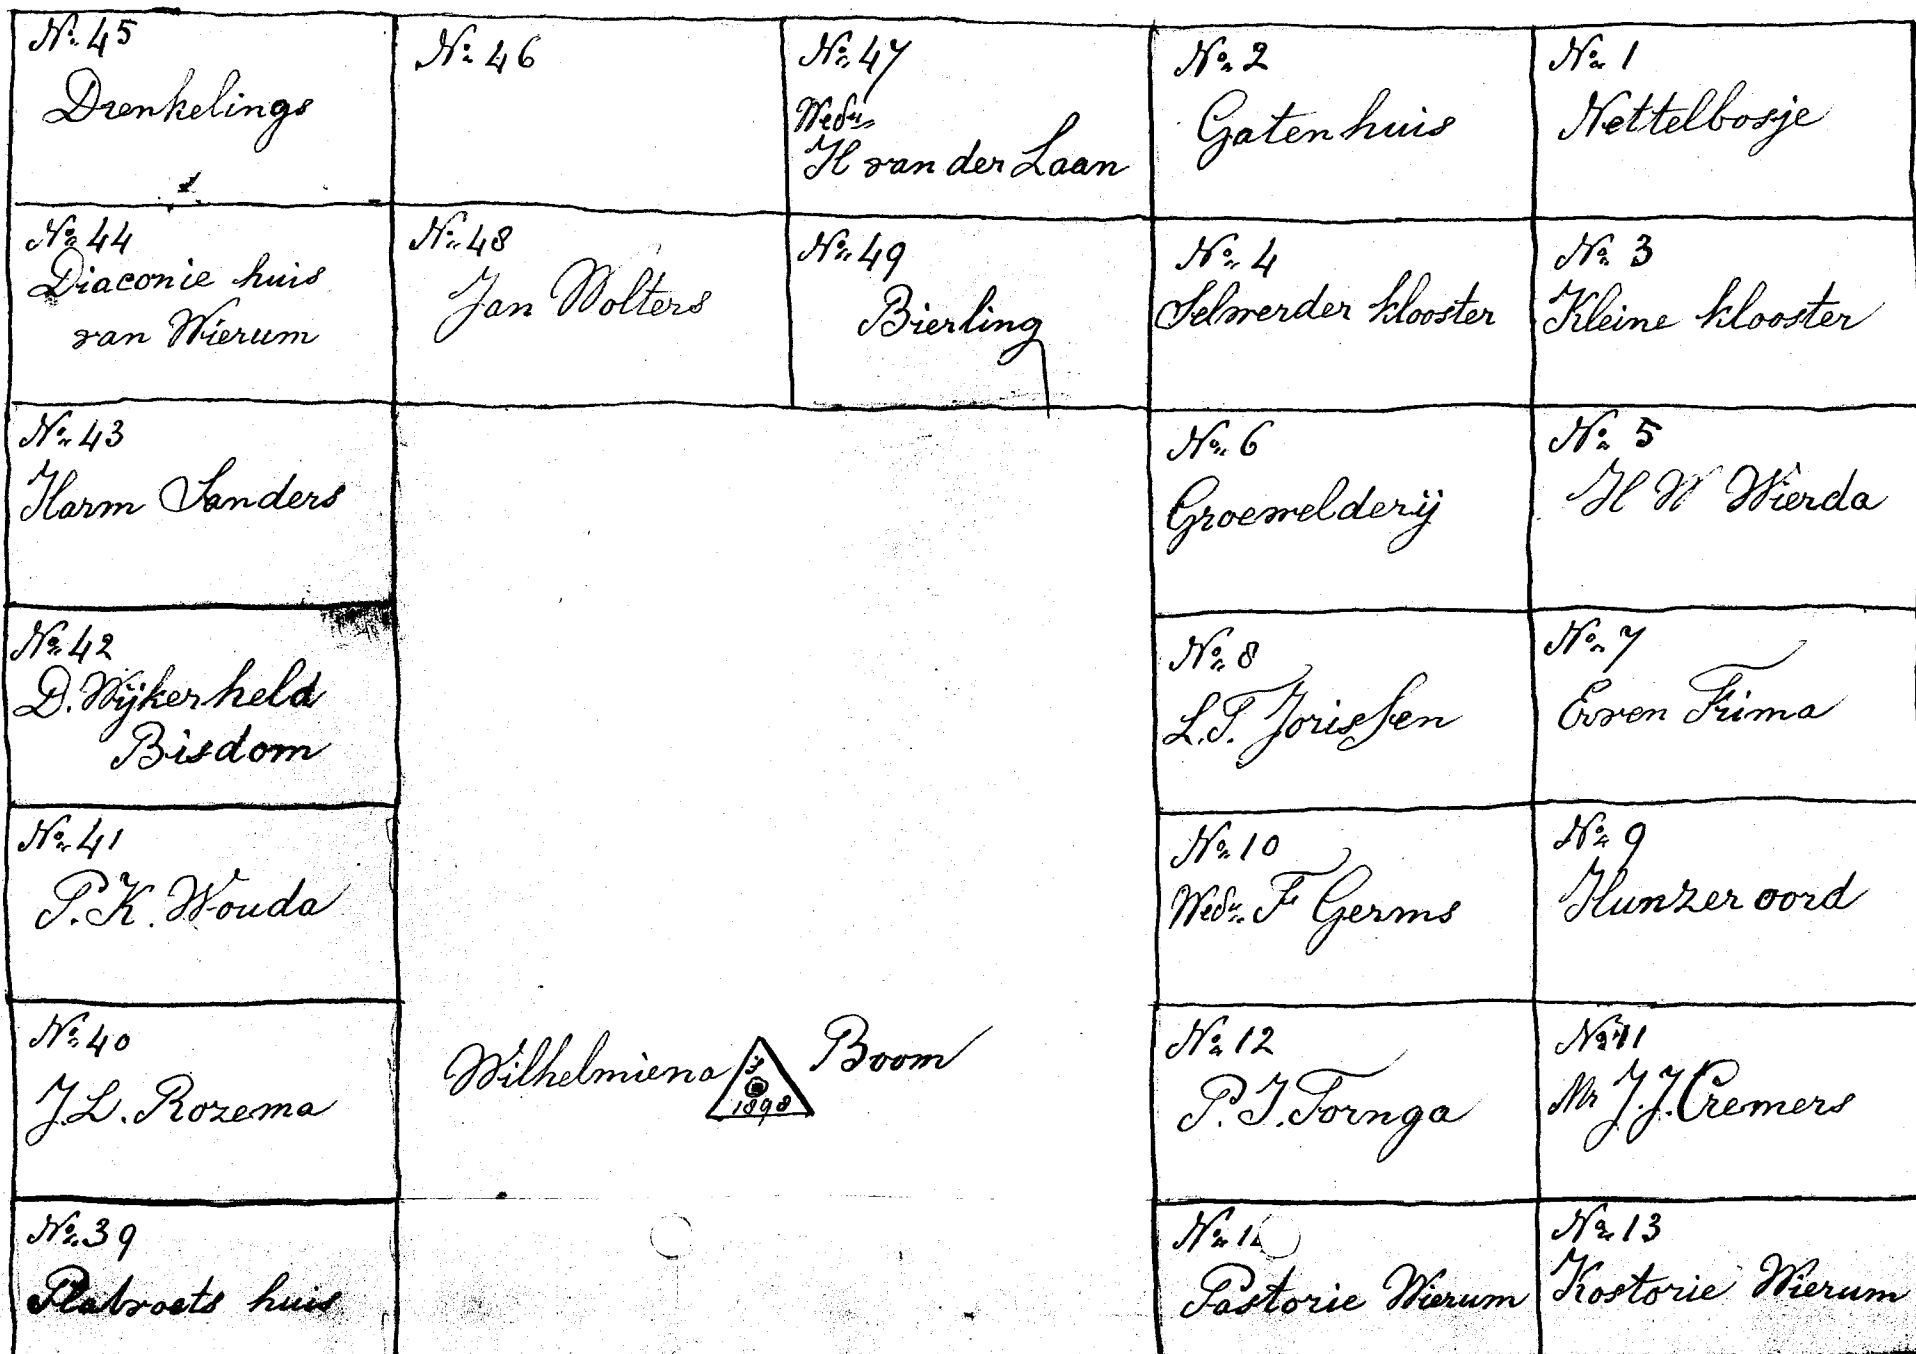 No. 45
Drenkelings
No. 46
No. 47
Wedu.
H van der Laan
No. 2
Gatenhuis
No. 1
Nettelbosje
No. 44
Diaconie huis
van Wierum
No. 48
Jan Wolters
No. 49
Bierling
No. 4
Selwerder klooster
No. 3
Kleine klooster
No. 43
Harm Sanders
No. 6
Groevelderij
No. 5
H W Wierda
No. 42
D. Wijkerheld
Bisdom
No. 8
L.T. Jorissen
No. 7
Even Frima
No. 41
P.K. Wouda
No. 10
Wedu. F Germs
No. 9
Hunzeroord
No. 40
J.L. Rozema
Wilhelmiena
3
1898
Boom
No. 12
P.J. Tornga
No. 11
Mr J.J. Cremers
No. 39
Platvoets huis
No.
Pastorie Wierum
No. 13
Kostorie Wierum